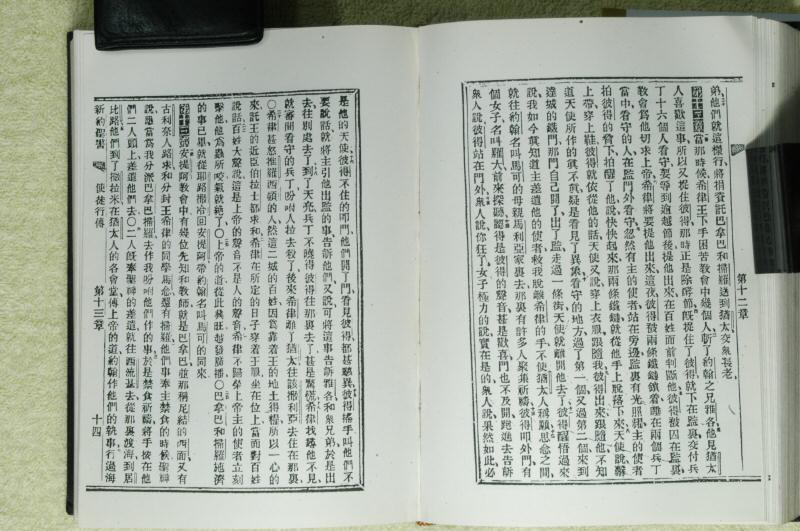 第十二章
弟他們就這樣行將捐資託巴拿巴和掃羅送到猶太交與長老
第十二章當那時候希律王下手困苦教會中幾個人斬了約翰之兄雅各他見猶太
人喜歡這事所以又捉住彼得那時正是除酵節旣捉住了彼得就下在監裏交付兵
丁十六個人看守要等到逾越節後提他出來在百姓面前判斷他彼得被囚在監裏
教會爲他切求上帝希律將要提他出來這夜彼得被兩條鐵鏈鎖着睡在兩個兵丁
當中看守的人在監門外看守忽然有主的使者站在旁邊監裏有光照耀主的使者
拍彼得的脅下拍醒了他說快快起來那兩條鐵鏈就從他手上脫落下來天使說繫
上帶穿上鞋彼得就依從他的話天使又說穿上衣服跟隨我彼得出來跟隨他不知
道天使所作的眞不眞疑是看見了異象看守的地方過了第一個又過第二個來到
達城的鐵門那門自己開了出了監走過一條街天使就離開他去了彼得醒悟過來
說我如今眞知道主差遣他的使者救我脫離希律的手不使猶太人稱願思念之間
就往約翰名叫馬可的母親馬利亞家裏去那裏有許多人聚集祈禱彼得叩外門有
個女子名叫羅大前來探聽認得是彼得的聲音甚是歡喜門也不及開跑進去告訴
衆人說彼得站在門外衆人說你狂了女子極力的說實在是的衆人說果然如此必
是他的天使彼得不住的叩門他們開了門看見彼得都甚驚異彼得搖手叫他們不
要說話就將主引他出監的事告訴他們又說可將這事告訴雅各和衆兄弟於是出
去往別處去了到了天亮兵丁不曉得彼得往那裏去了甚是驚慌希律找彼得不見
就審問看守的兵丁吩咐人拉去殺了後來希律離了猶太往該撒利亞去住在那裏
〇希律甚怒推羅西頓的人然這二城的百姓因爲靠着王的地土得糧所以一心的
來託王的近臣伯拉士都求和希律在所定的日子穿着王服坐在位上當面對百姓
說話百姓大聲說這是上帝的聲音不是人的聲音希律不歸榮上帝主的使者立刻
擊他他爲蟲所咬氣就絕了〇上帝的道從此興旺越發廣播〇巴拿巴和掃羅施濟
的事已畢就從耶路撒冷回安提阿帶約翰名叫馬可的同來
第十三章安提阿教會中有幾位先知和教師就是巴拿巴並那稱尼結的西面又有
古利奈人路求和分封王希律的同學馬念還有掃羅他們事奉主禁食的時候聖神
說應當爲我分派巴拿巴掃羅去作我吩咐他們作的事於是禁食祈禱將手按在他
們二人頭上差遣他們去〇二人旣奉聖神的差遣就往西流基去從那裏渡海到居
比路他們到了撒拉米在猶太人的各會堂傳上帝的道約翰作他們的執事行過海
新約聖書 使徒行傳 第十三章 十四